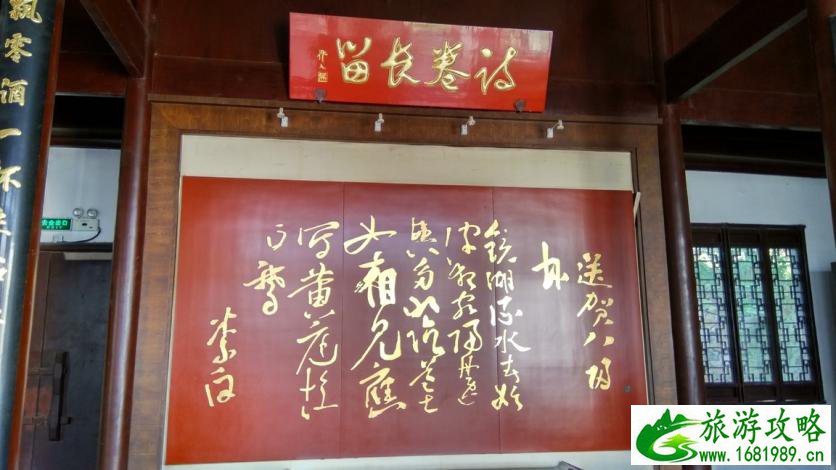 詩卷長留
送賀八歸
越
鏡湖流水春始
波狂客歸舟逸
興多山陰道士
如相見應
寫黄庭換
白鵝
李白
飄零酒一杯
旅游攻略
www.1681989.cn